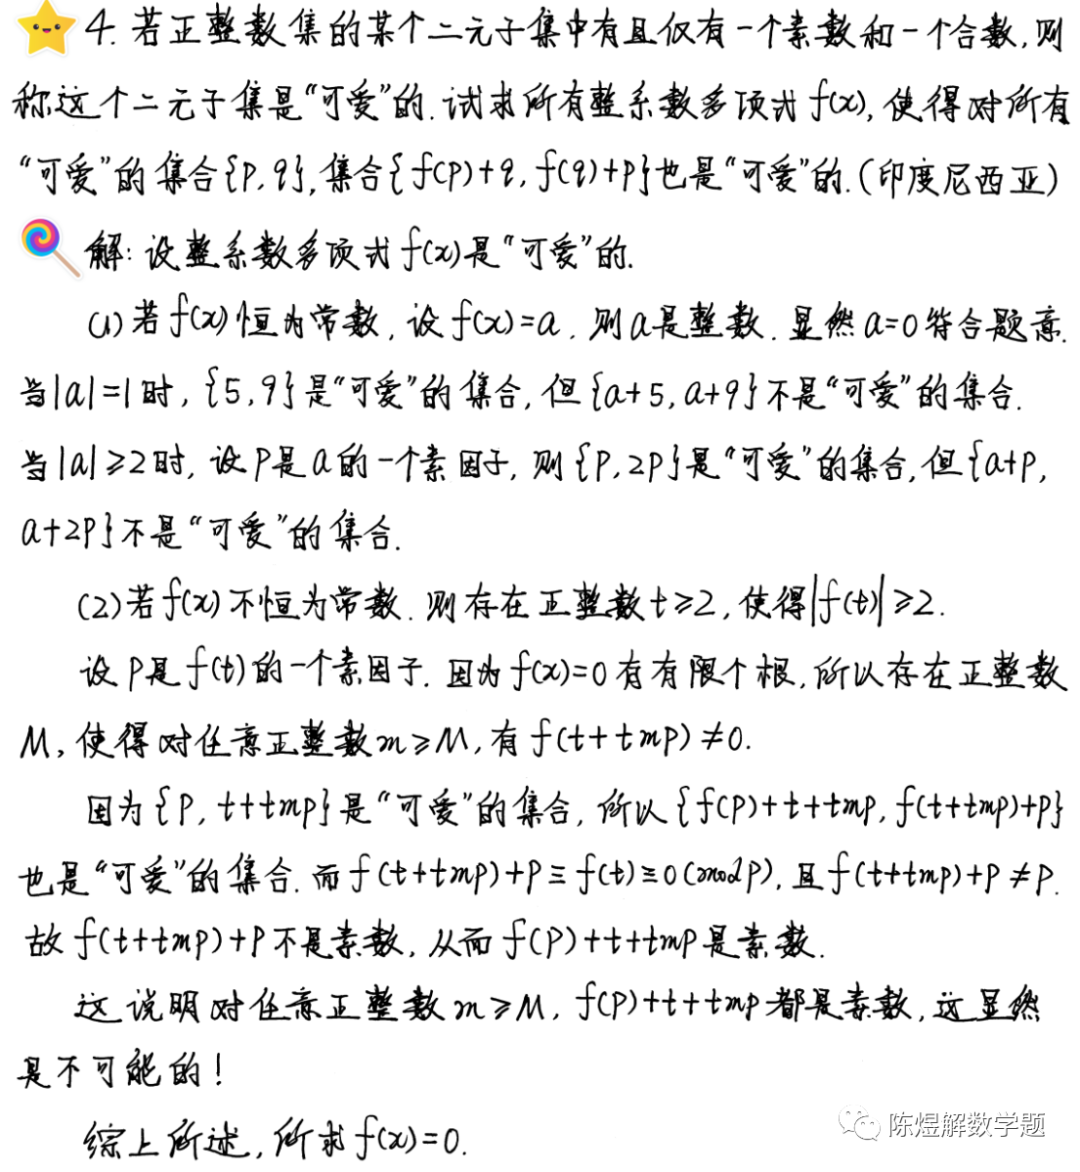 4. 若正整数集的某个二元子集中有且仅有一个素数和一个合数,则
称这个二元子集是“可爱”的. 试求所有整系数多项式 f(x), 使得对所有
“可爱”的集合{p,q}, 集合{f(p)+q, f(q)+p}也是“可爱”的.(印度尼西亚)
解: 设整系数多项式 f(x)是“可爱”的.
(1) 若 f(x)恒为常数, 设 f(x)=a. 则 a是整数. 显然 a=0符合题意.
当|a|=1时, {5,9}是“可爱”的集合, 但{a+5, a+9}不是“可爱”的集合.
当|a|≥2时, 设 P是a的一个素因子, 则{P,2P}是“可爱”的集合,但{a+P,
a+2P}不是“可爱”的集合.
(2)若 f(x)不恒为常数. 则存在正整数 t≥2, 使得|f(t)|≥2.
设 P是 f(t)的一个素因子. 因为 f(x)=0有有限个根, 所以存在正整数
M, 使得对任意正整数m≥M, 有 f(t+tmp)≠0.
因为{P, t+tmp}是“可爱”的集合, 所以{f(p)+t+tmp, f(t+tmp)+p}
也是“可爱”的集合. 而 f(t+tmp)+P≡f(t)≡0(modP), 且 f(t+tmp)+P≠P.
故 f(t+tmp)+P不是素数, 从而 f(P)+t+tmp是素数.
这说明对任意正整数 m≥M, f(P)+t+tmp都是素数, 这显然
是不可能的!
综上所述, 所求 f(x)=0.
陈煜解数学题